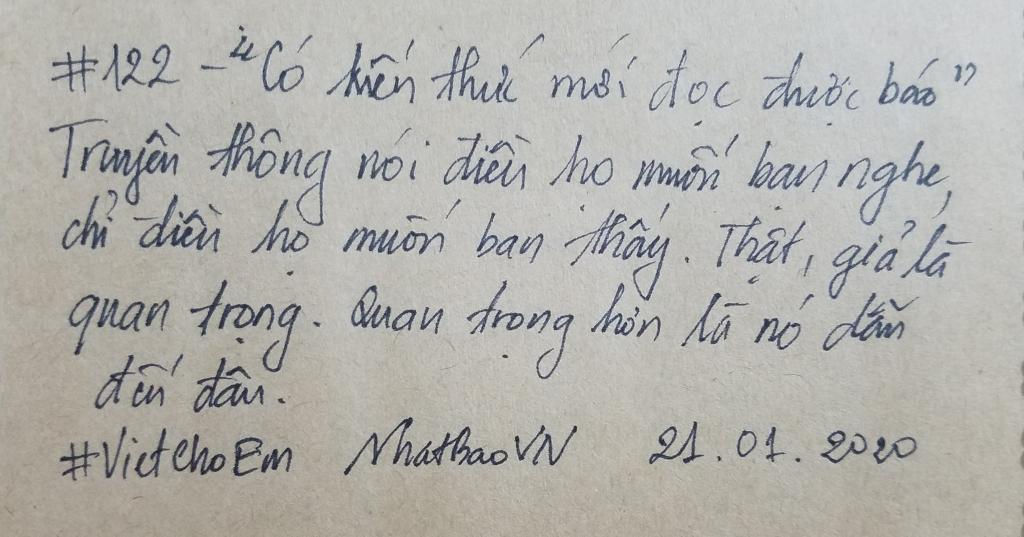 #122 - "Có kiến thức mới đọc được báo"
Truyền thông nói điều họ muốn bạn nghe,
chỉ điều họ muốn bạn thấy. Thật, giả là
quan trọng. Quan trọng hơn là nó dẫn
đến đâu.
#VietChoEm NhatBaoVN 21.01.2020